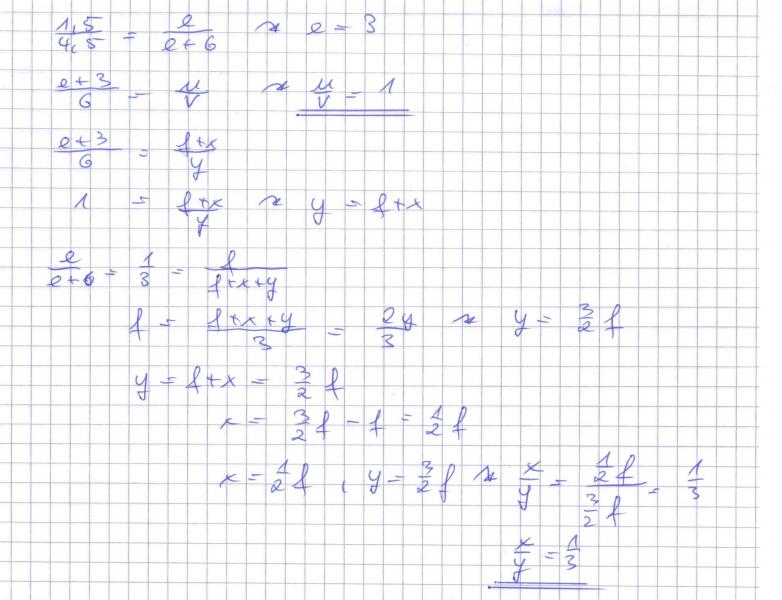 1,5/4,5 = e/(e+6) ↝ e = 3
(e+3)/6 = u/v ↝ u/v = 1
(e+3)/6 = (f+x)/y
1 = (f+x)/y ↝ y = f+x
e/(e+6) = 1/3 = f/(f+x+y)
f = (f+x+y)/3 = 2y/3 ↝ y = 3/2 f
y = f+x = 3/2 f
x = 3/2 f - f = 1/2 f
x = 1/2 f , y = 3/2 f ↝ x/y = (1/2 f)/(3/2 f) = 1/3
x/y = 1/3